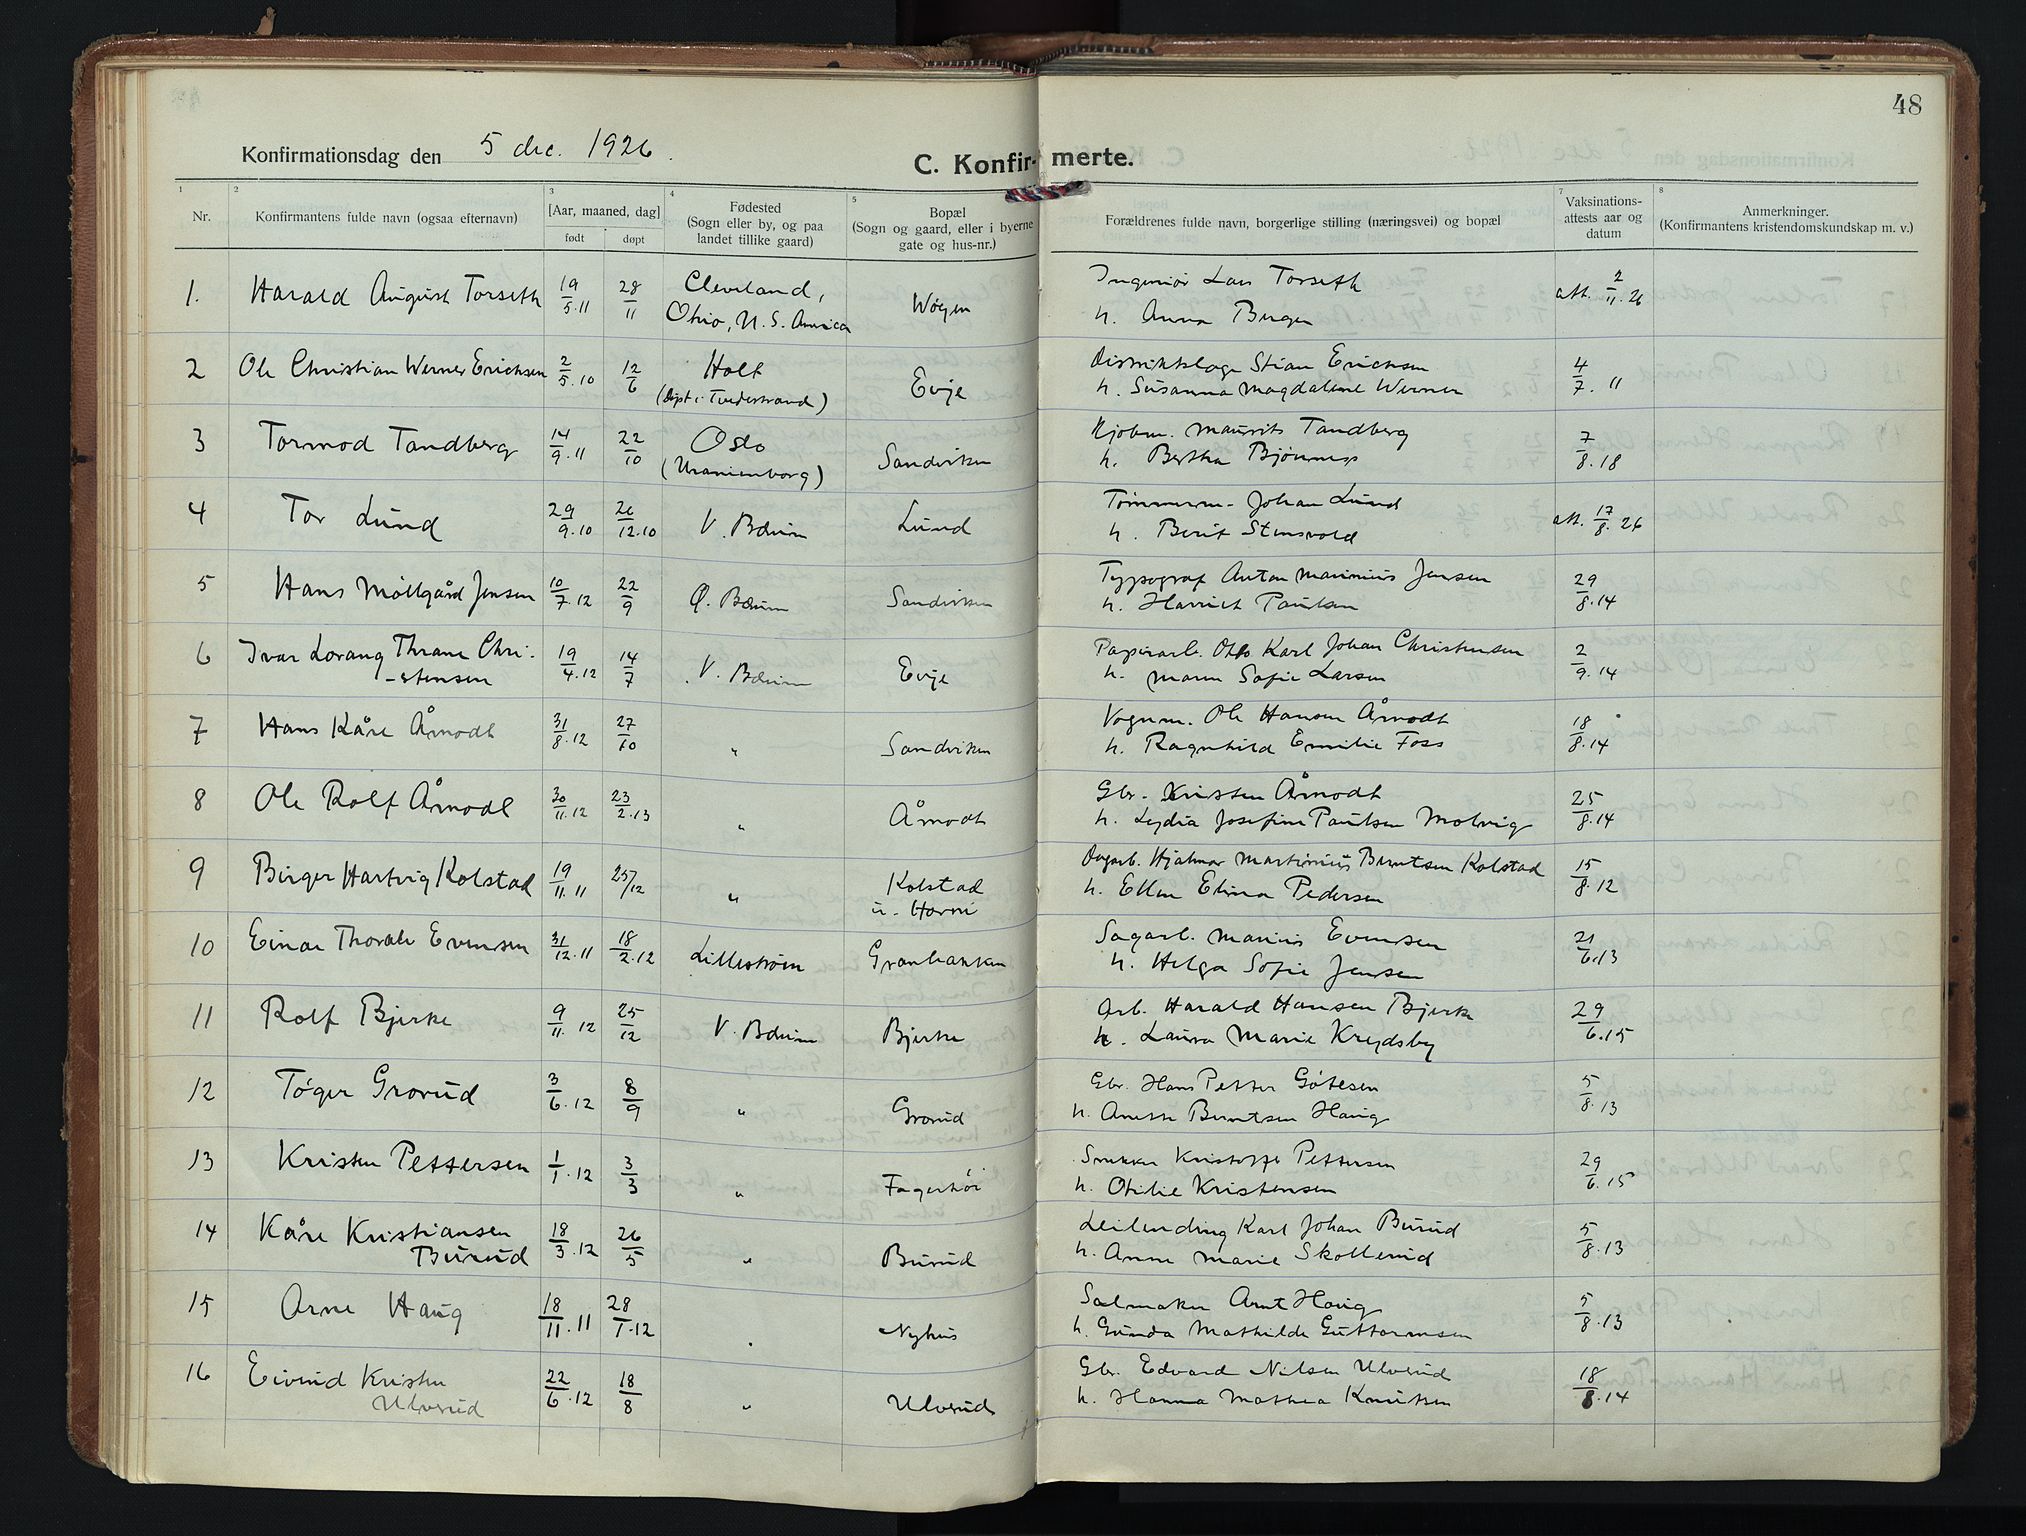 48
Konfirmationsdag den 5 dec. 1926.
C. Konfirmerte.
1 2 3 4 5 7 8
Nr. Konfirmantens fulde navn (ogsaa efternavn) [Aar, maaned, dag] født døpt Fødested (Sogn eller by, og paa landet tillike gaard) Bopæl (Sogn og gaard, eller i byerne gate og hus-nr.) Forældrenes fulde navn, borgerlige stilling (næringsvei) og bopæl Vaksinations-attests aar og datum Anmerkninger. (Konfirmantens kristendomskundskap m. v.)
1. Harald August Torseth 19/5.11 28/11 Cleveland, Ohio, U.S. America Wøyen Ingeniør Lars Torseth h. Anna Birger att. 2/11.26
2 Ole Christian Werner Erichsen 2/5.10 12/6 Holt (døpt i Tvedestrand) Evje Distriktslæge Stian Erichsen h. Susanna Magdalene Werner 4/7.11
3 Tormod Tandberg 14/9.11 22/10 Oslo (Uranienborg) Sandviken Kjøbm. Maurits Tandberg h. Bertha Bjønness 7/8.18
4 Tor Lund 29/9.10 26/12.10 V. Bærum Lund Tømmerm. Johan Lund h. Berit Stensvold att. 17/8.26
5 Hans Møllgård Jensen 10/7.12 22/9 Ø. Bærum Sandviken Typograf Anton Marinius Jensen h. Harriet Paulsen 29/8.14
6 Ivar Lorang Thrane Chri-stensen 19/4.12 14/7 V. Bærum Evje Papirarb. Otto Karl Johan Christensen h. Marie Sofie Larsen 2/9.14
7 Hans Kåre Åmodt 31/8.12 27/10 " Sandviken Vognm. Ole Hansen Åmodt h. Ragnhild Emilie Foss 18/8.14
8 Ole Rolf Åmodt 30/11.12 23/2.13 " Åmodt Gbr. Kristen Åmodt h. Lydia Josefine Paulsen Molvig 25/8.14
9 Birger Hartvig Kolstad 19/11.11 25/12 " Kolstad u. Horni Dagarb. Hjalmar Martinius Berntsen Kolstad h. Ellen Elina Pedersen 15/8.12
10 Einar Thorolv Evensen 31/12.11 18/2.12 Lillestrøm Granbakken Sagarb. Marius Evensen h. Helga Sofie Jensen 21/6.13
11 Rolf Bjerke 9/11.12 25/12 V. Bærum Bjerke Arb. Harald Hansen Bjerke h. Laura Marie Krydsby 29/6.15
12 Tøger Grorud 3/6.12 8/9 " Grorud Gbr. Hans Petter Gulbrandsen h. Anette Berntsen Haug 5/8.13
13 Kristen Pettersen 1/1.12 3/3 " Fagerhøi Snekker Kristoffer Pettersen h. Otilie Kristensen 29/6.15
14 Kåre Kristiansen Burud 18/3.12 26/5 " Burud Leilending Karl Johan Burud h. Anne Marie Skollerud 5/8.13
15 Arne Haug 18/11.11 28/1.12 " Nyhus Salmaker Arnt Haug h. Gunda Mathilde Guttormsen 5/8.13
16 Eivind Kristen Ulverud 22/6.12 18/8 " Ulverud Gbr. Edvard Nilsen Ulverud h. Hanna Mathea Knutsen 18/8.14